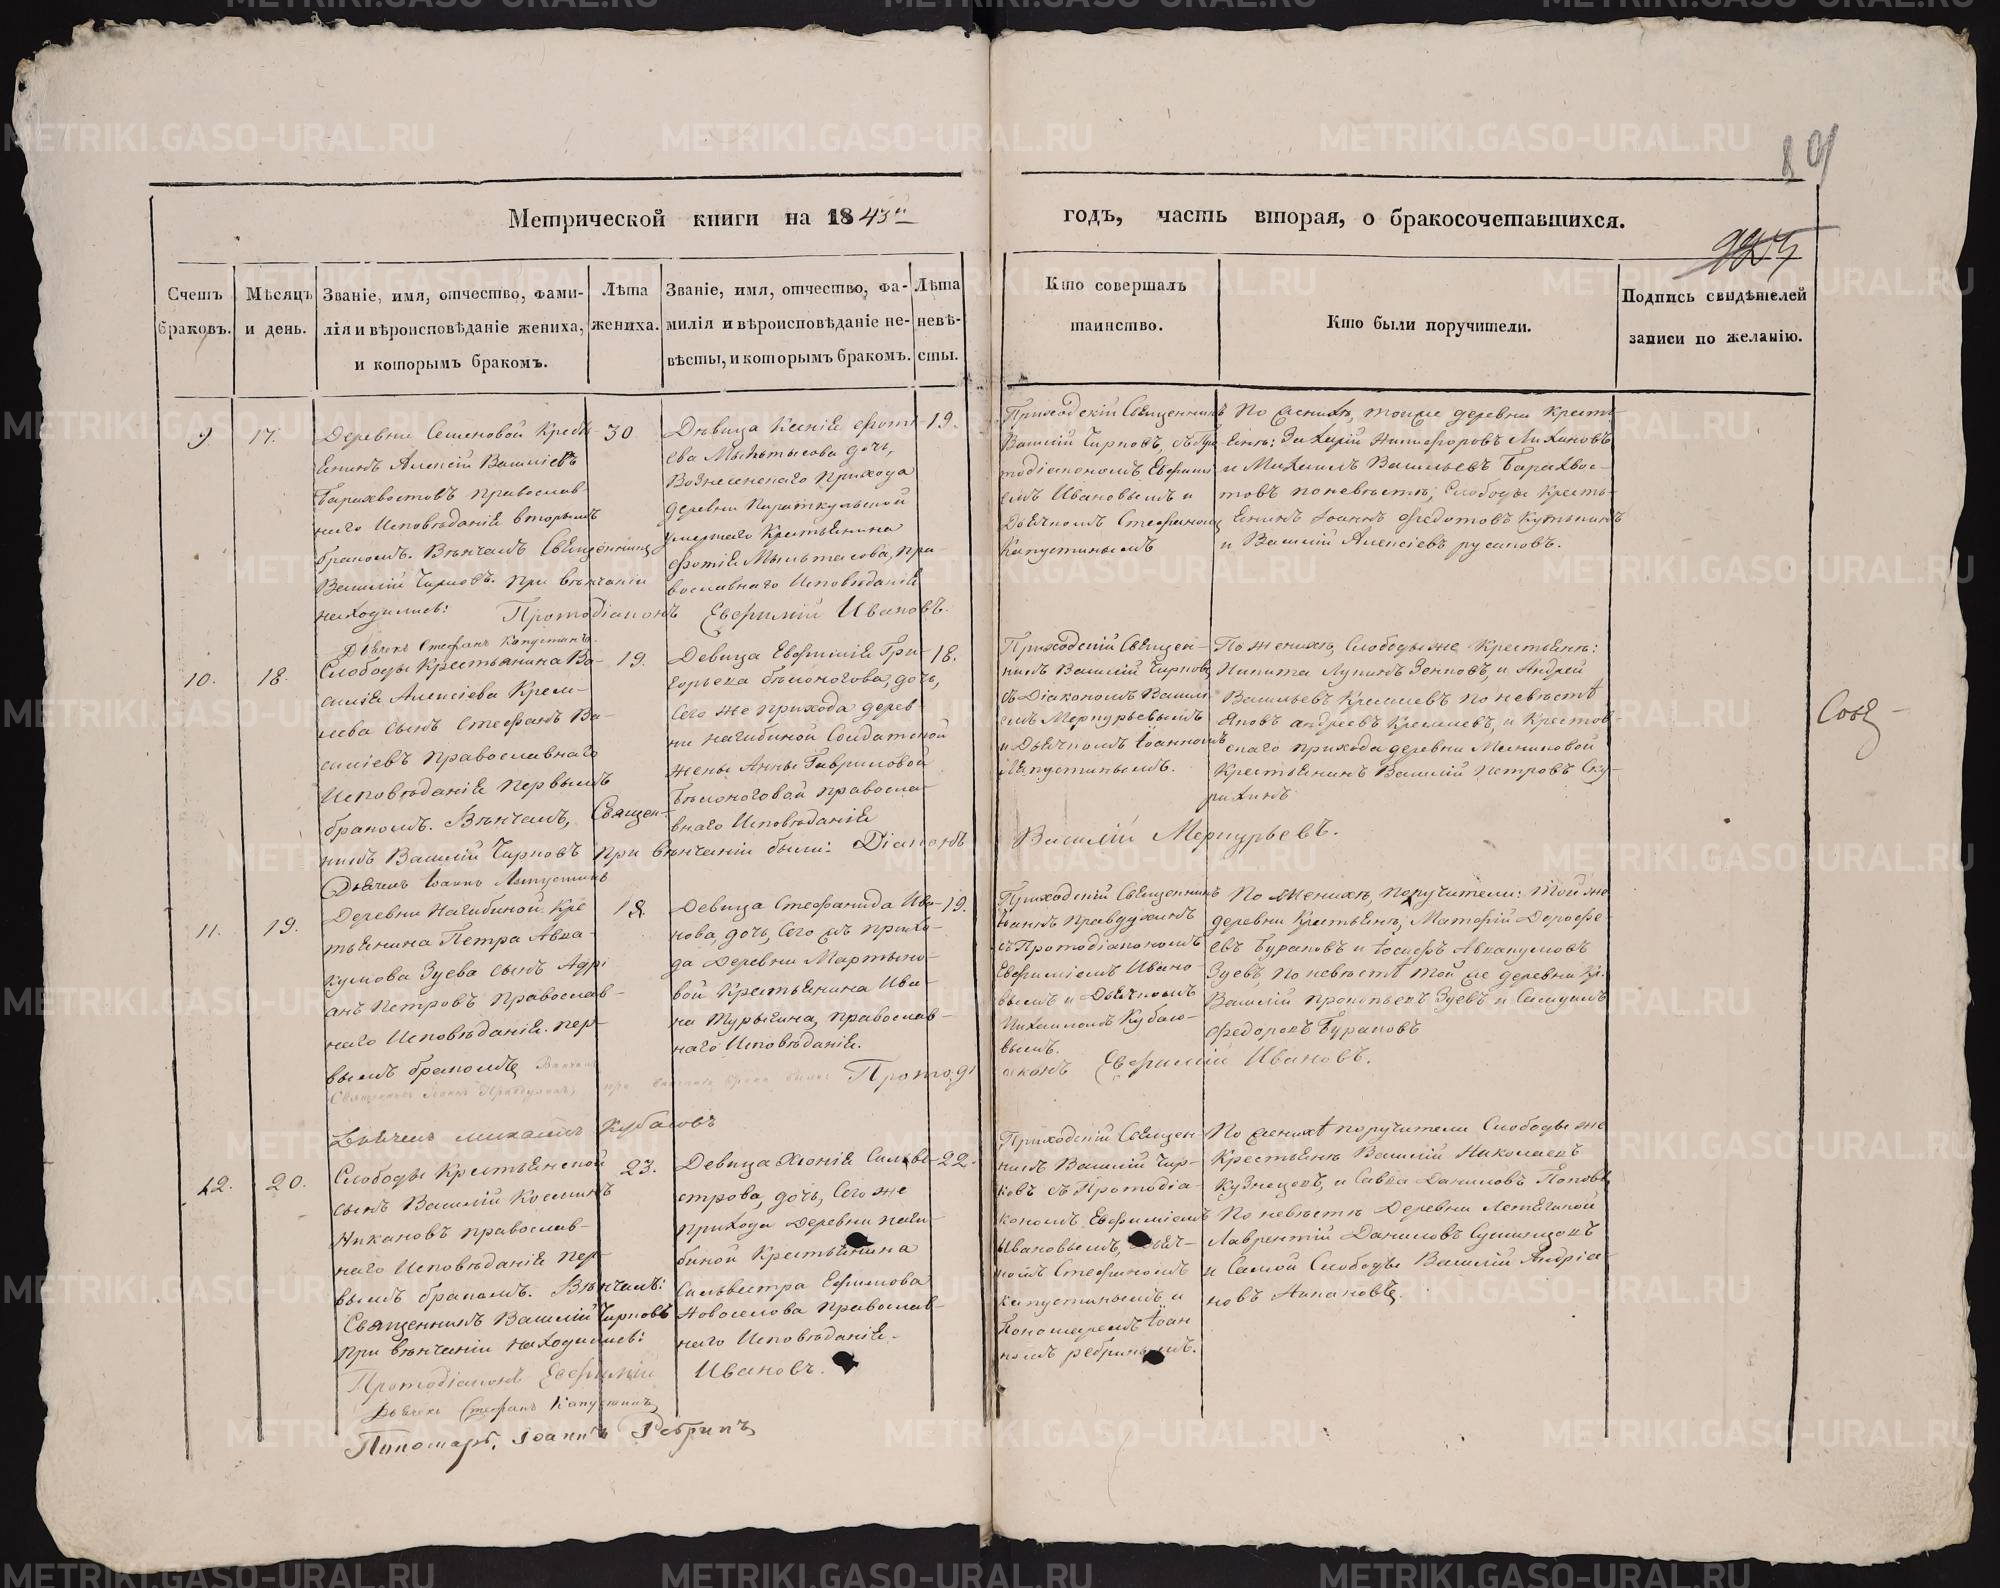 Метрической книги на 1843й
годъ, часть вторая, о бракосочетавшихся.
89
Счетъ браковъ.
Мѣсяцъ и день.
Званіе, имя, отчество, фами-
лія и вѣроисповѣданіе жениха,
и которымъ бракомъ.
Лѣта
жениха.
Званіе, имя, отчество, фа-
милія и вѣроисповѣданіе не-
вѣсты, и которымъ бракомъ.
Лѣта
невѣ-
сты.
Кто совершалъ
таинство.
Кто были поручители.
Подпись свидѣтелей
записи по желанію.
9
17.
Деревни Семеновой Кресть-
янинъ Алексій Василіевъ
Барахвостовъ православ
наго Исповѣданія вторымъ
бракомъ. Вѣнчалъ Священникъ
Василій Чирковъ. При вѣнчаніи
находились: Протодіаконъ Евфимій Ивановъ.
Дьячекъ Стефанъ Капустинъ.
30
Дѣвица Ксенія Фоті
ева Мыльтасова дочь,
Вознесенскаго Прихода
деревни
умершаго Крестьянина
Фотія Мыльтасова, пра-
вославнаго Исповѣданія
19.
Приходскій Священникъ
Василій Чирковъ, съ Про
тодіакономъ Евфимі
емъ Ивановымъ и
Дьячкомъ Стефаномъ
Капустинымъ
По женихѣ, тоиже деревни Кресть
яне: Захарій Никифоровъ
и Михаилъ Васильевъ Барахвос-
товъ по невѣстѣ; Слободы Кресть-
янинъ Іоаннъ Федотовъ
и Василій Алексіевъ Русаковъ.
10.
18.
Слободы Крестьянина Ва-
силія Алексіева Крем-
лева сынъ Стефанъ Ва-
силіевъ Православнаго
Исповѣданія первымъ
бракомъ. Вѣнчалъ, Священ-
никъ Василій Чирковъ при вѣнчаніи были: Діаконъ
Василій Меркурьевъ.
Дьячекъ Іоаннъ Лепустинъ
19.
Девица Евфимія Гри-
горьева Бѣлоногова, дочь,
Сего же прихода дерев
ни Нагибиной Солдатской
жены Анны Гавриловой
Бѣлоноговой православ-
внаго Исповѣданія
18.
Приходскій Священ-
никъ Василій Чирковъ
съ Діакономъ Васили
емъ Меркурьевымъ
и Дьячкомъ Іоанномъ
По женихѣ, Слободы же Крестьяне:
Никита Лукинъ Зенковъ, и Андрей
Васильевъ Кремлевъ по невѣстѣ
Яковъ Андреевъ Кремлевъ, и Крестов-
скаго прихода деревни
Крестьянинъ Василій Петровъ Ску-
рихинъ
11.
19.
Деревни Нагибиной Кре
стьянина Петра Авва-
кумова Зуева сынъ Адрі
анъ Петровъ Православ-
наго Исповѣданія. пер-
вымъ бракомъ Вѣнчалъ
Священникъ Іоаннъ Правдухинъ, при вѣнчаніи были Протоді
аконъ Евфимій Ивановъ.
Дьячекъ Михаилъ Кубасовъ
18.
Девица Стефанида Ива-
нова, дочь, Сего жъ прихо-
да Деревни Мартыно-
вой Крестьянина Ива-
на Турыгина, православ-
наго Исповѣданія.
19.
Приходскій Священникъ
Іоаннъ Правдухинъ
съ Протодіакономъ
Евфиміемъ Ивано
вымъ и Дьячкомъ
Михаиломъ Кубасо-
вымъ.
По женихѣ, поручители: той же
деревни Крестьяне, Матфій Дорофе
евъ Бураковъ и Іосифъ Аввакумовъ
Зуевъ, по невѣстѣ той же деревни Кр.
Василій Прокопьевъ Зуевъ и Самуилъ
Федоровъ Бураковъ
12.
20.
Слободы Крестьянской
сынъ Василій Косминъ
Никановъ православ-
наго Исповѣданія пер-
вымъ бракомъ. Вѣнчалъ:
Священникъ Василій Чирковъ
при вѣнчаніи находились:
Протодіаконъ Евфимій Ивановъ.
Дьячекъ Стефанъ Капустинъ
Пономарь, Іоаннъ Ребринъ
23.
Девица Хіонія Сильве-
строва, дочь, Сего же
прихода Деревни Наги-
биной Крестьянина
Сильвестра Ефимова
Новоселова православ-
наго Исповѣданія.
22.
Приходскій Священ
никъ Василій Чир-
ковъ съ Протодіа-
кономъ Евфиміемъ
Ивановымъ, Дьяч-
комъ Стефаномъ
Капустинымъ и
Пономаремъ Іоан
номъ Ребринымъ.
По женихѣ поручители Слободы же
Крестьяне Василій Николаевъ
Кузнецовъ, и Савва Даниловъ Поповъ
По невѣстѣ Деревни
Лаврентій Даниловъ
и Самой Слободы Василій Андріа-
новъ Никановъ.
METRIKI.GASO-URAL.RU